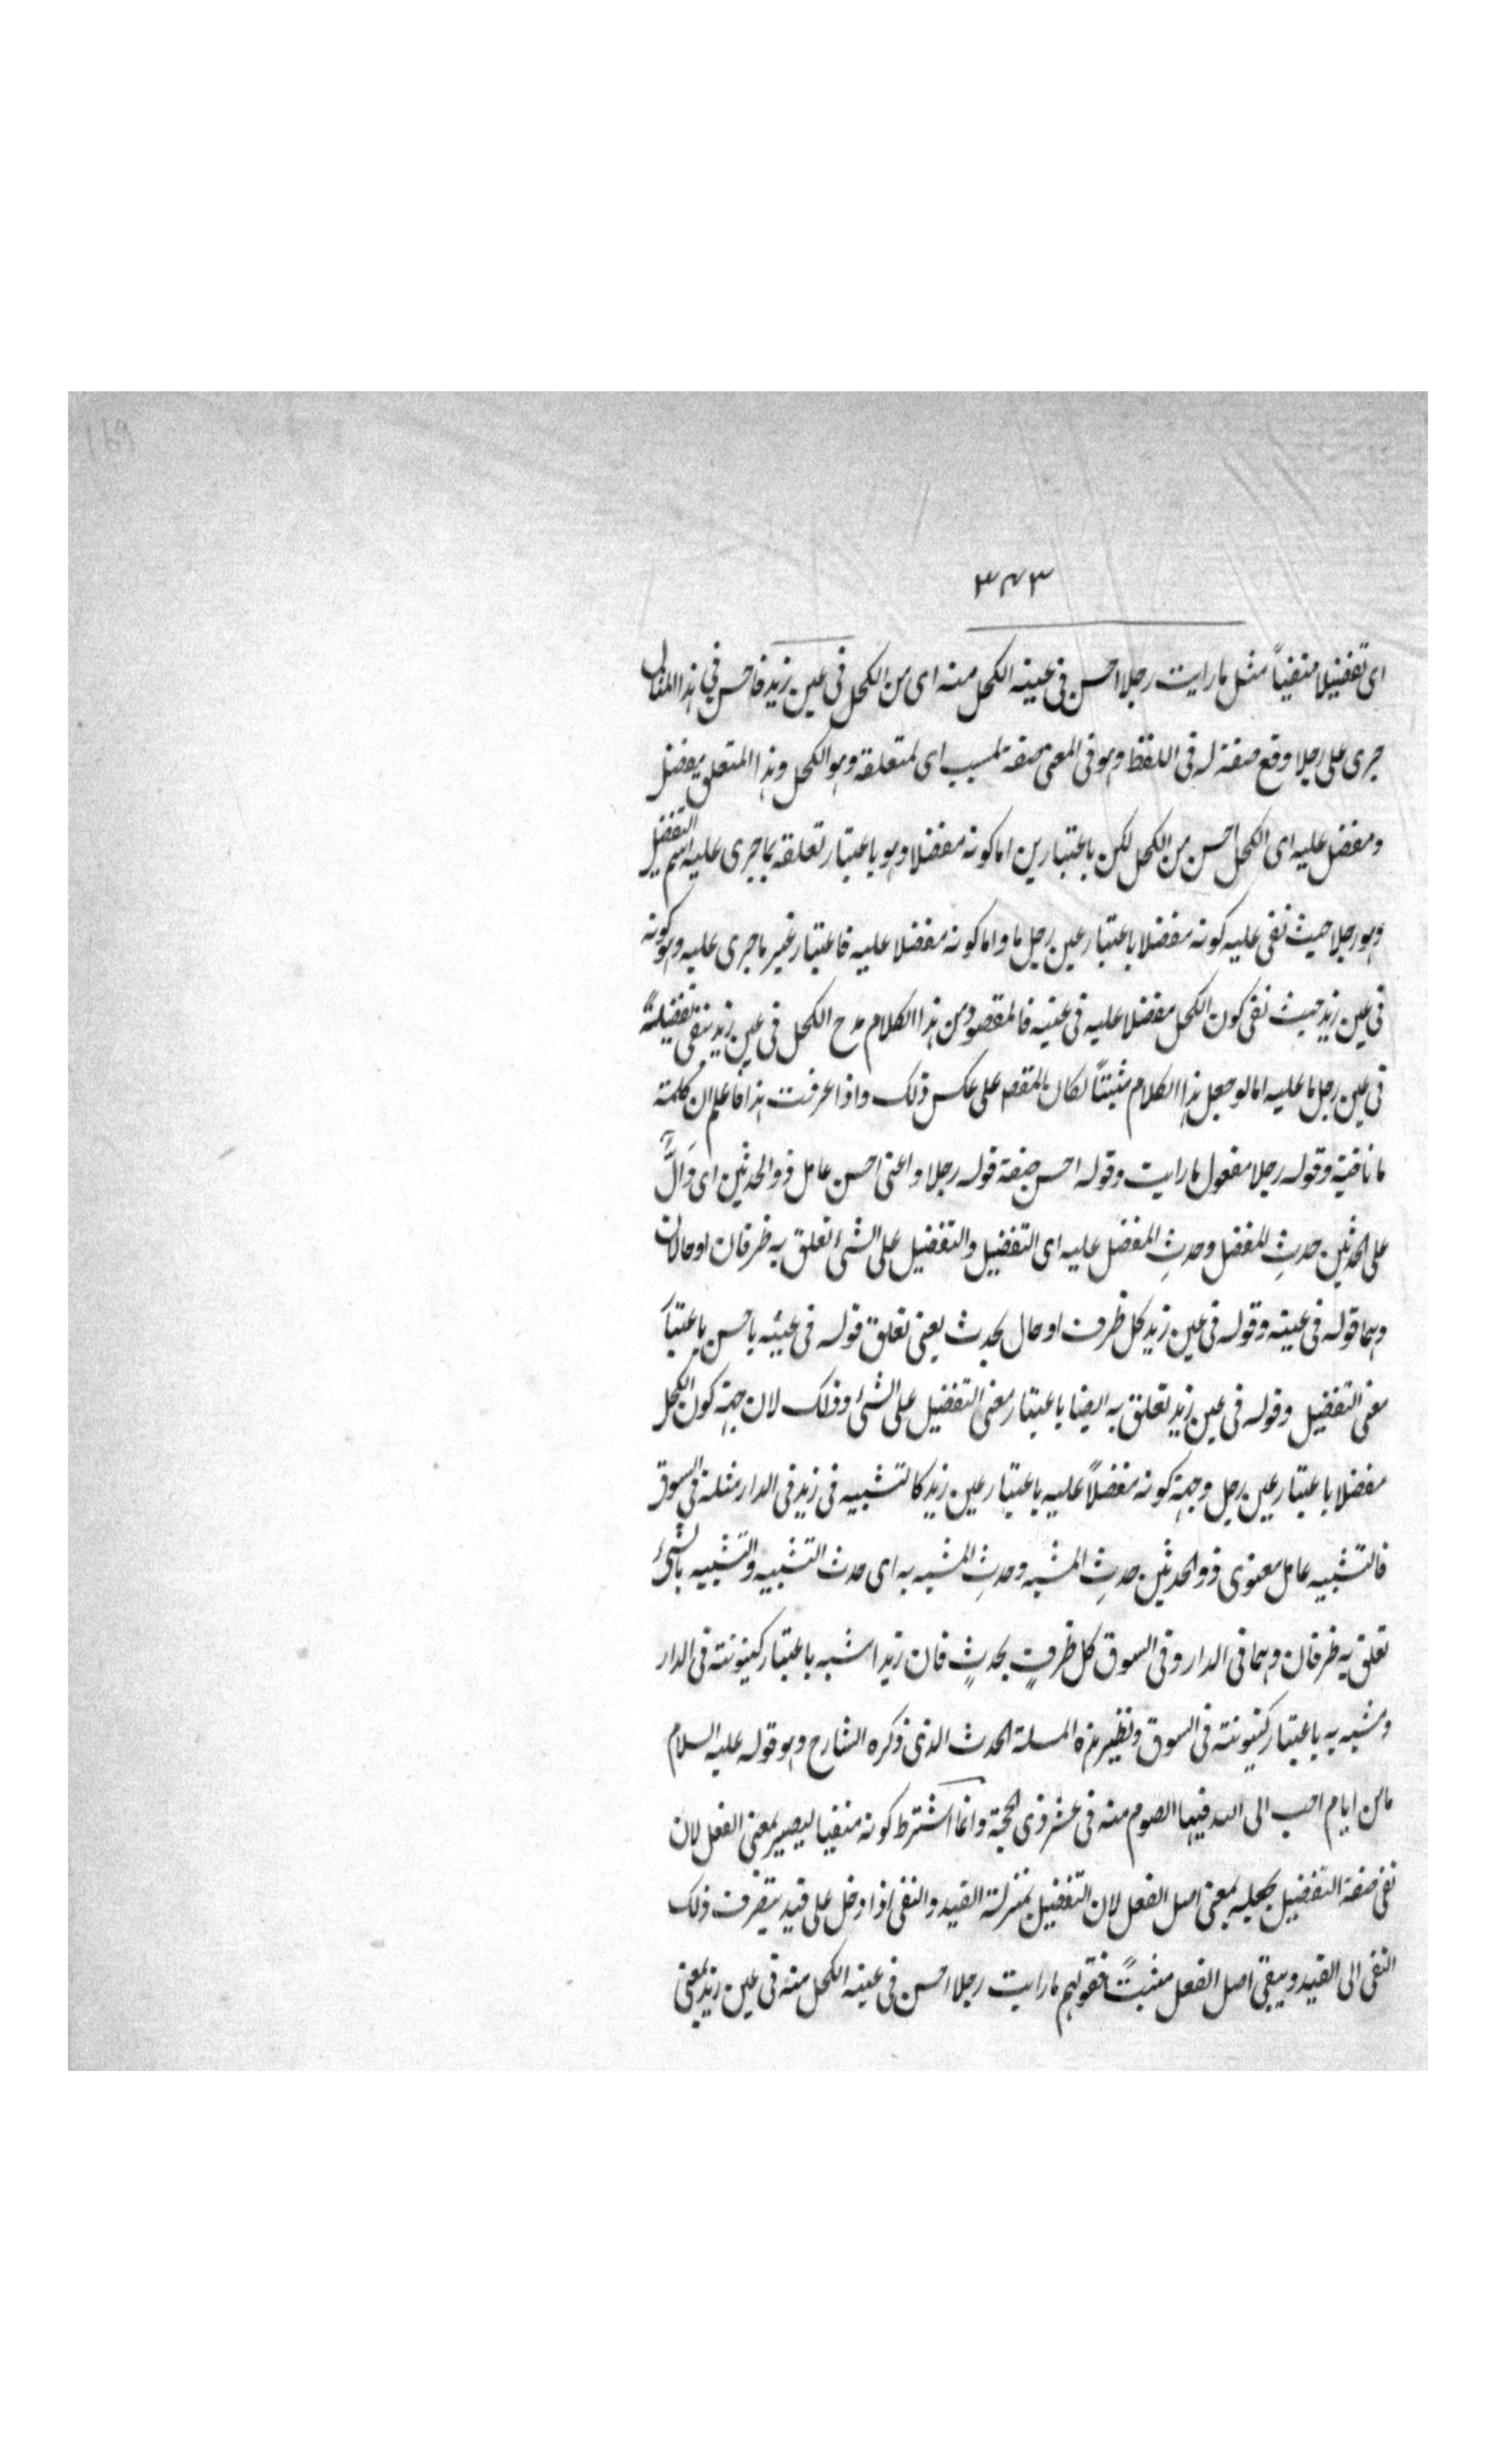 169
٣٤٣
اى تفضيلا منفيًا مثل ما رايت رجلا احسن فى عينه الكحل منه اى من الكحل فى عين زيد فاحسن فى هذا المثال
جرى على رجلا وقع صفة له فى اللفظ وهو فى المعنى صفة لمسبب اى لمتعلقه وهو الكحل وهذا المتعلق مفضل
ومفضل عليه اى الكحل احسن من الكحل لكن باعتبارين اما كونه مفضلا وهو باعتبار تعلقه بما جرى عليه اسم التفضيل
وهو رجلا حيث نفى عليه كونه مفضلا باعتبار عين رجل ما واما كونه مفضلا عليه فاعتبار غير ما جرى عليه وهو كونه
فى عين زيد حيث نفى كون الكحل مفضلا عليه فى عينيه فالمقصود من هذا الكلام مدح الكحل فى عين زيد بنفى تفضيله
فى عين رجل ما عليه اما لو جعل هذا الكلام مثبتًا لكان المقصد على عكس ذلك واذا عرفت هذا فاعلم ان كلمة
ما نافية وقوله رجلا مفعول ما رايت وقوله احسن صفة قوله رجلا واعنى احسن عامل ذو الحدثين اى دَالٌّ
على الحدثين حدثِ المفضل وحدثِ المفضل عليه اى التفضيل والتفضيل على الشئ تعلق به ظرفان او حالان
وهما قوله فى عينه وقوله فى عين زيد كل ظرف او حال بحدث يعنى تعلق قوله فى عينه باحسن باعتبار
معنى التفضيل وقوله فى عين زيد تعلق به ايضا باعتبار معنى التفضيل على الشئ وذلك لان جهة كون الكحل
مفضلا باعتبار عين رجل وجهة كونه مفضلاً عليه باعتبار عين زيد كالتشبيه فى زيد فى الدار مثله فى السوق
فالتشبيه عامل معنوى ذو الحدثين حدثِ المشبه وحدثِ المشبه به اى حدث التشبيه والتشبيه بالشئ
تعلق به ظرفان وهما فى الدار وفى السوق كل ظرفٍ بحدثٍ فان زيدا شبه باعتبار كينونته فى الدار
ومشبه به باعتبار كينونته فى السوق ونظير هذه المسلة الحدث الذى ذكره الشارح وهو قوله عليه السلام
ما من ايام احب الى الله فيها الصوم منه فى عشر ذى الحجة وانما اشترط كونه منفيا ليصير بمعنى الفعل لان
نفى صفة التفضيل يجعله بمعنى اصل الفعل لان التفضيل بمنزلة القيد والنفى اذا دخل على قيد يتصرف ذلك
النفى الى القيد ويبقى اصل الفعل مثبتًا فقولهم ما رايت رجلا احسن فى عينه الكحل منه فى عين زيد بمعنى